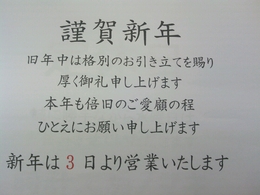 謹賀新年
旧年中は格別のお引き立てを賜り
厚く御礼申し上げます
本年も倍旧のご愛顧の程
ひとえにお願い申し上げます
新年は3日より営業いたします